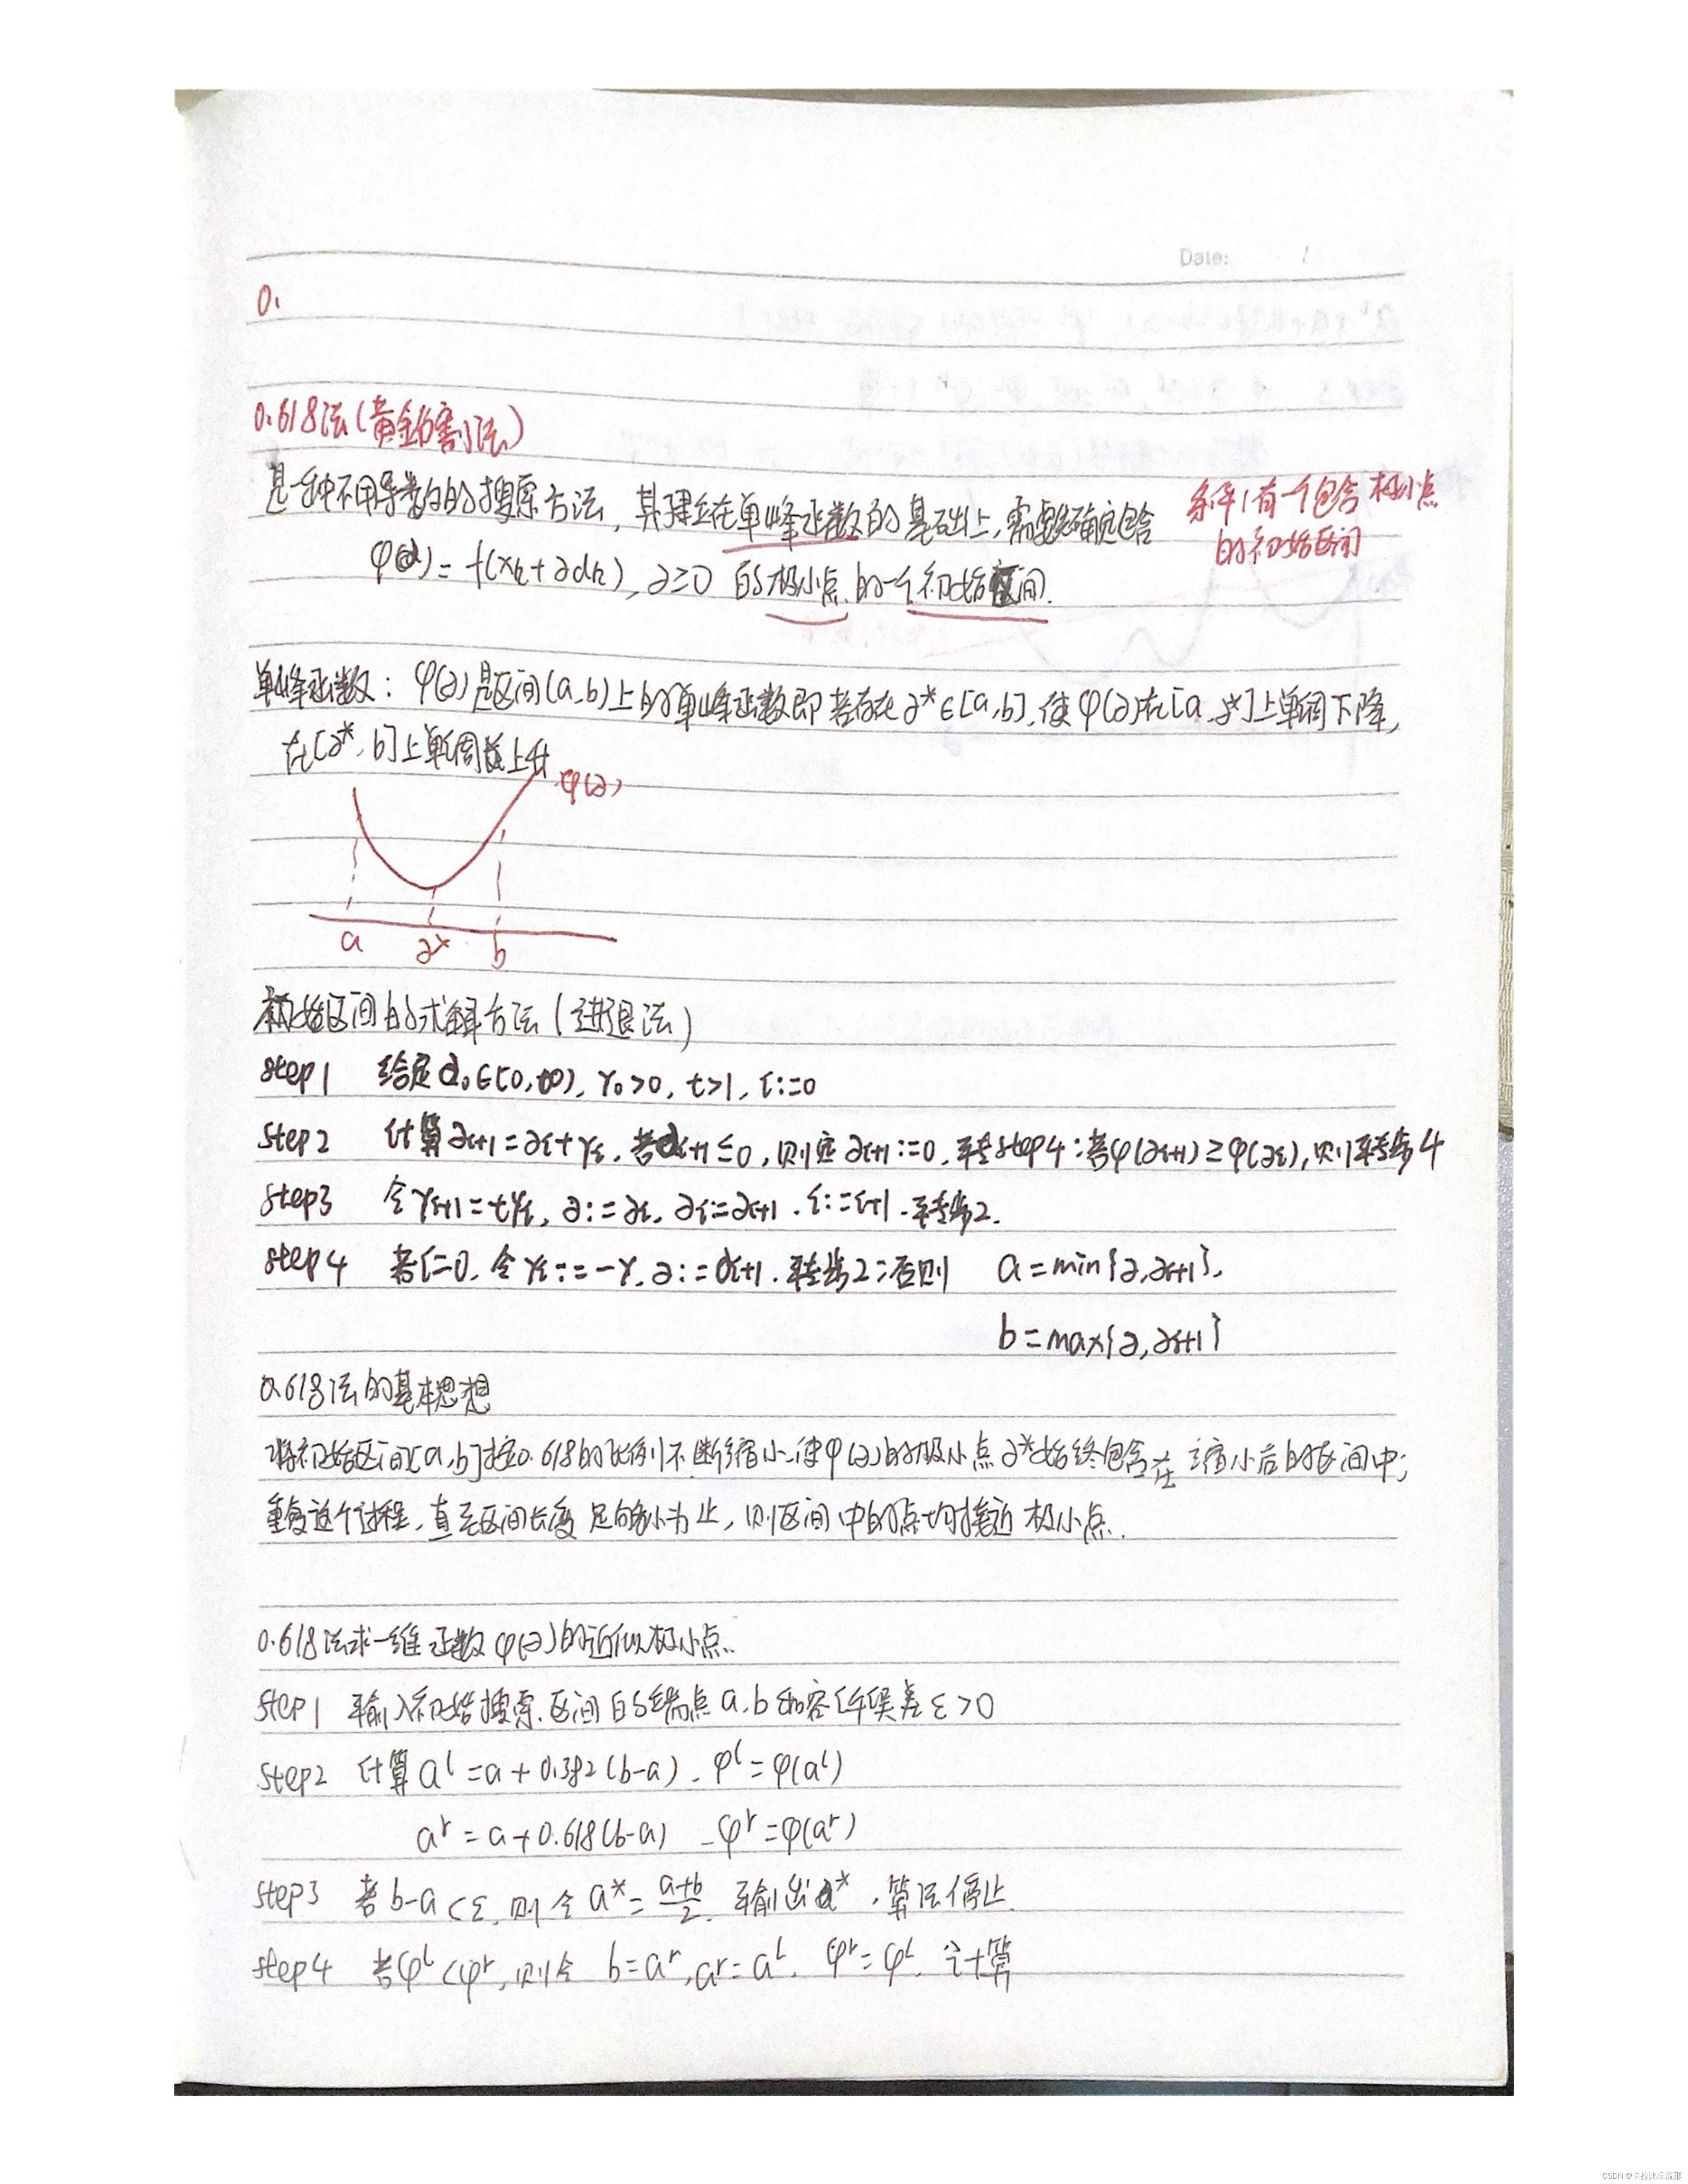 Date: /
0.
0.618法(黄金分割法)
是一种不用导数的搜索方法,其建立在单峰函数的基础上,需要先确定包含
条件1有一个包含极小点
的初始区间
φ(α)=f(xk+αdk), α≥0 的极小点的一个初始区间.
单峰函数: φ(α)是区间(a,b)上的单峰函数即若存在α*∈[a,b],使φ(α)在[a,α*]上单调下降,
在[α*,b]上单调上升
φ(α)
a α* b
初始区间的求解方法(进退法)
step1 给定α0∈[0,+∞), γ0>0, t>1, i:=0
step2 计算αi+1=αi+γi,若αi+1≤0,则定αi+1:=0,转step4;若φ(αi+1)≥φ(αi),则转步4
step3 令γi+1=tγi, α:=αi, αi:=αi+1, i:=i+1.转步2.
step4 若i=0,令γi:=-γ,α:=αi+1.转步2;否则 a=min{α,αi+1},
b=max{α,αi+1}
0.618法的基本思想
将初始区间[a,b]按0.618的比例不断缩小,使φ(α)的极小点α*始终包含在缩小后的区间中;
重复这个过程,直至区间长度足够小为止,则区间中的点均接近极小点.
0.618法求一维函数φ(α)的近似极小点.
step1 输入初始搜索区间的端点a,b和容许误差ε>0
step2 计算 aˡ=a+0.382(b-a), φˡ=φ(aˡ)
aʳ=a+0.618(b-a) φʳ=φ(aʳ)
step3 若b-a<ε,则令a*=(a+b)/2,输出a*,算法停止.
step4 若φˡ<φʳ,则令 b=aʳ,aʳ=aˡ, φʳ=φˡ,计算
CSDN @卡拉比丘流形